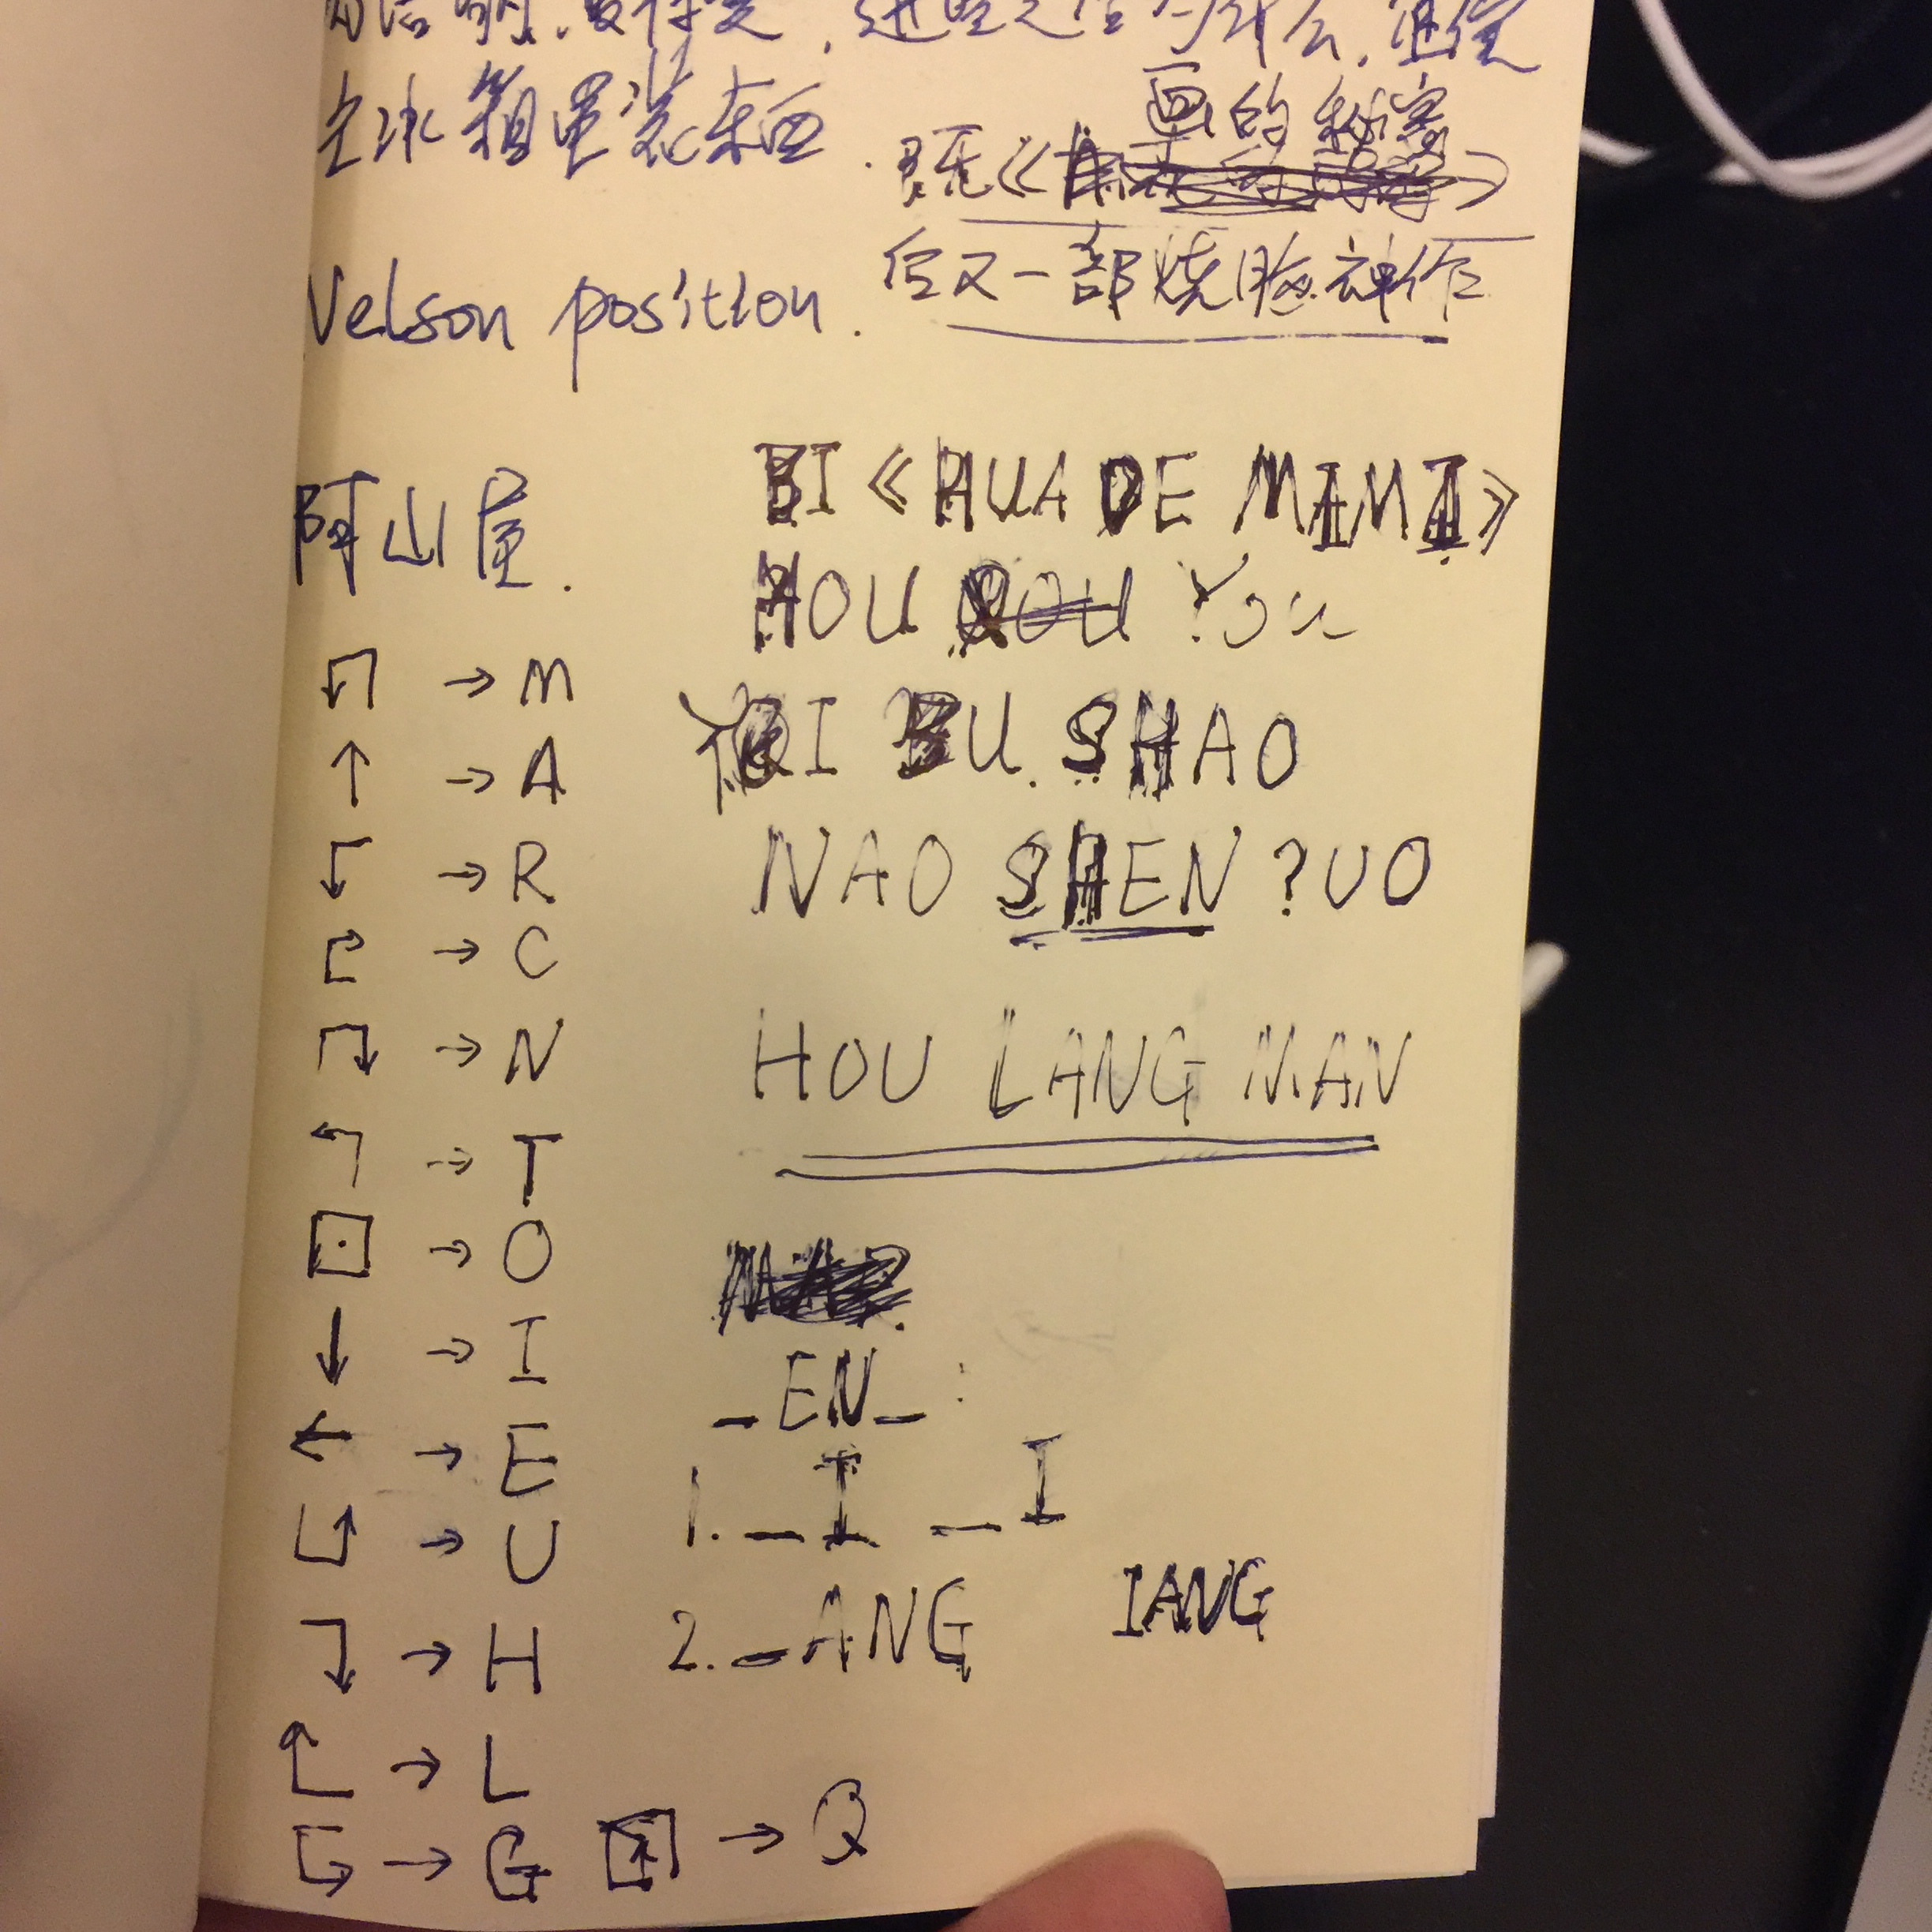 去冰箱里装东西.
画的秘密
既《》
后又一部烧脑神作
Nelson position.
阿山屋.
BI《HUA DE MIMI》
HOU YOU
YI BU SHAO
NAO SHEN ?UO
HOU LANG MAN
→ M
↑ → A
→ R
→ C
→ N
→ T
→ O
↓ → I
← → E
→ U
→ H
→ L
→ G → Q
_EN_:
1. _I _I
2. _ANG IANG